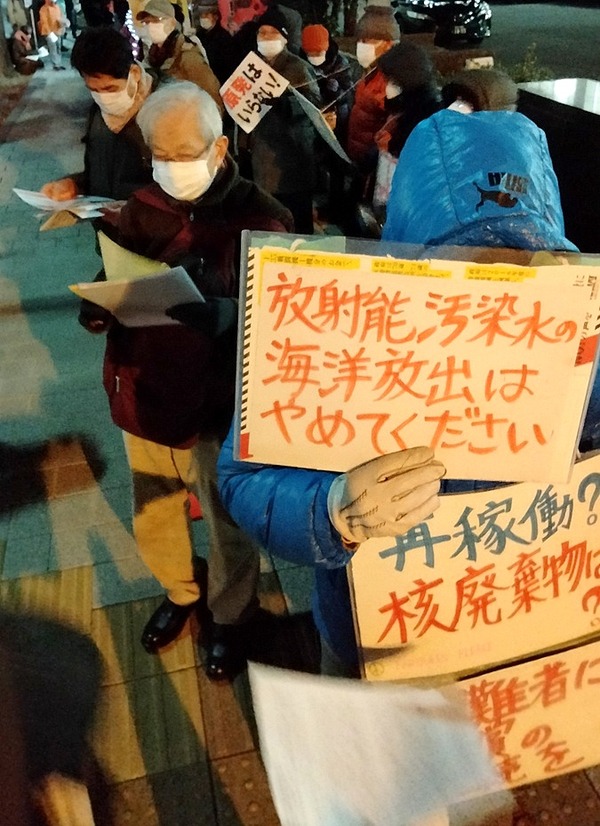 原発は
いらない
放射能汚染水の
海洋放出は
やめてください
再稼働?
核廃棄物は
?
難者に
の
を